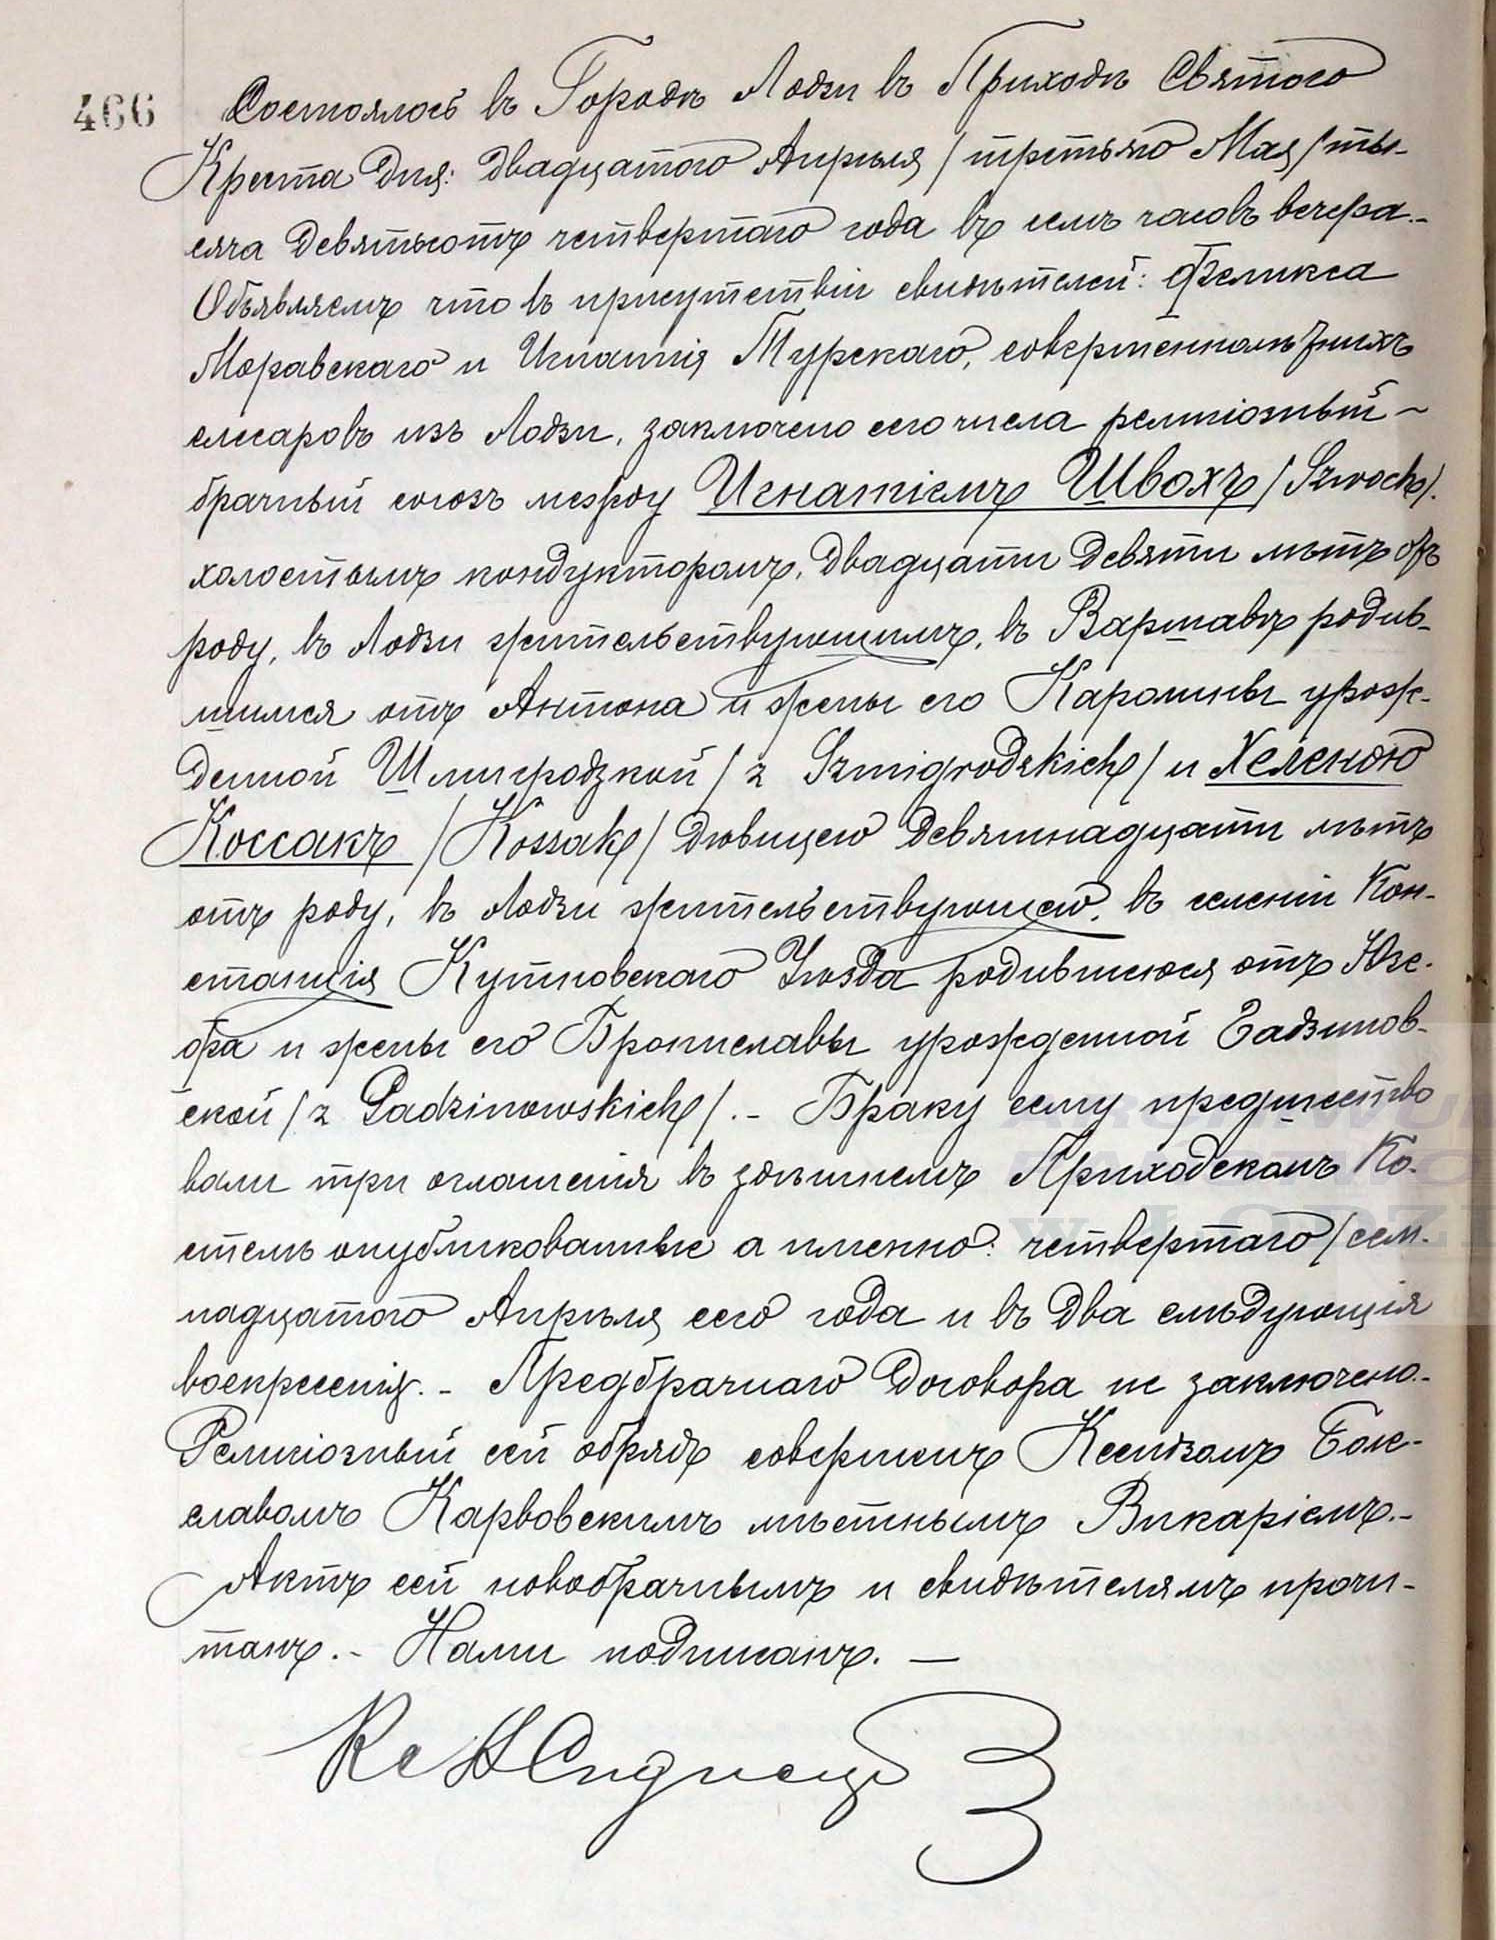 466 Состоялось въ Городѣ Лодзи въ Приходѣ Святого
Креста Дня: двадцатого Апрѣля / третьяго Мая / ты-
сяча девятьсотъ четвертаго года въ семь часовъ вечера.-
Объявляемъ что въ присутствіи свидѣтелей: Феликса
Моравскаго и Игнатія Турскаго, совершеннолѣтнихъ
слесаровъ изъ Лодзи, заключено сего числа религіозный -
брачный союзъ между Игнатіемъ Швохъ / Szwoch /.
холостымъ кондукторомъ, двадцати девяти лѣтъ отъ
роду, въ Лодзи жительствующимъ, въ Варшавѣ родив-
шимся отъ Антона и жены его Каролины урож-
денной Шмигродзкой / z Szmigrodzkich / и Хеленою
Коссакъ / Kossak / дѣвицею девятнадцати лѣтъ
отъ роду, въ Лодзи жительствующею, въ селеніи Кон-
станція Кутновскаго Уѣзда родившеюся отъ Юзе-
фа и жены его Брониславы урожденной Гадзинов-
ской / z Gadzinowskich /. - Браку сему предшество
вали три оглашенія въ здѣшнемъ Приходскомъ Ко-
стелѣ опубликованные а именно: четвертаго / сем-
надцатого Апрѣля сего года и въ два слѣдующія
воскресенія. - Предбрачнаго договора не заключено.-
Религіозный сей обрядъ совершенъ Ксендзомъ Боле-
славомъ Карвовскимъ мѣстнымъ Викаріемъ.-
Актъ сей новобрачнымъ и свидѣтелямъ прочи-
танъ. - Нами подписанъ. —
ARCHIWUM
W ŁODZI